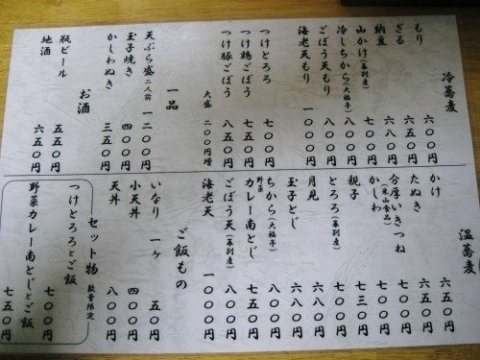 冷蕎麦
もり 六〇〇円
ざる 六五〇円
納豆
山かけ(幕別産) 七八〇円
冷しちから(大福亭) 八〇〇円
ごぼう天もり 八〇〇円
海老天もり 一〇〇〇円
つけとろろ 七〇〇円
つけ鶏ごぼう 七五〇円
つけ豚ごぼう 八五〇円
大盛 二〇〇円増
一品
天ぷら盛二人前 一二〇〇円
玉子焼き 四〇〇円
かしわぬき 三五〇円
お酒
瓶ビール 五五〇円
地酒 六五〇円
温蕎麦
かけ 六五〇円
たぬき 六五〇円
厚いきつね(米山食品) 七〇〇円
かしわ
親子 七三〇円
とろろ(幕別産)
月見
玉子とじ 六八〇円
ちから(大福亭)
野菜カレー南とじ 七五〇円
ごぼう天(幕別産) 八〇〇円
海老天 一〇〇〇円
ご飯もの
いなり 一ヶ 五〇円
小天丼 四〇〇円
天丼 八〇〇円
セット物 数量限定
つけとろろとご飯 七〇〇円
野菜カレー南とじとご飯 七五〇円